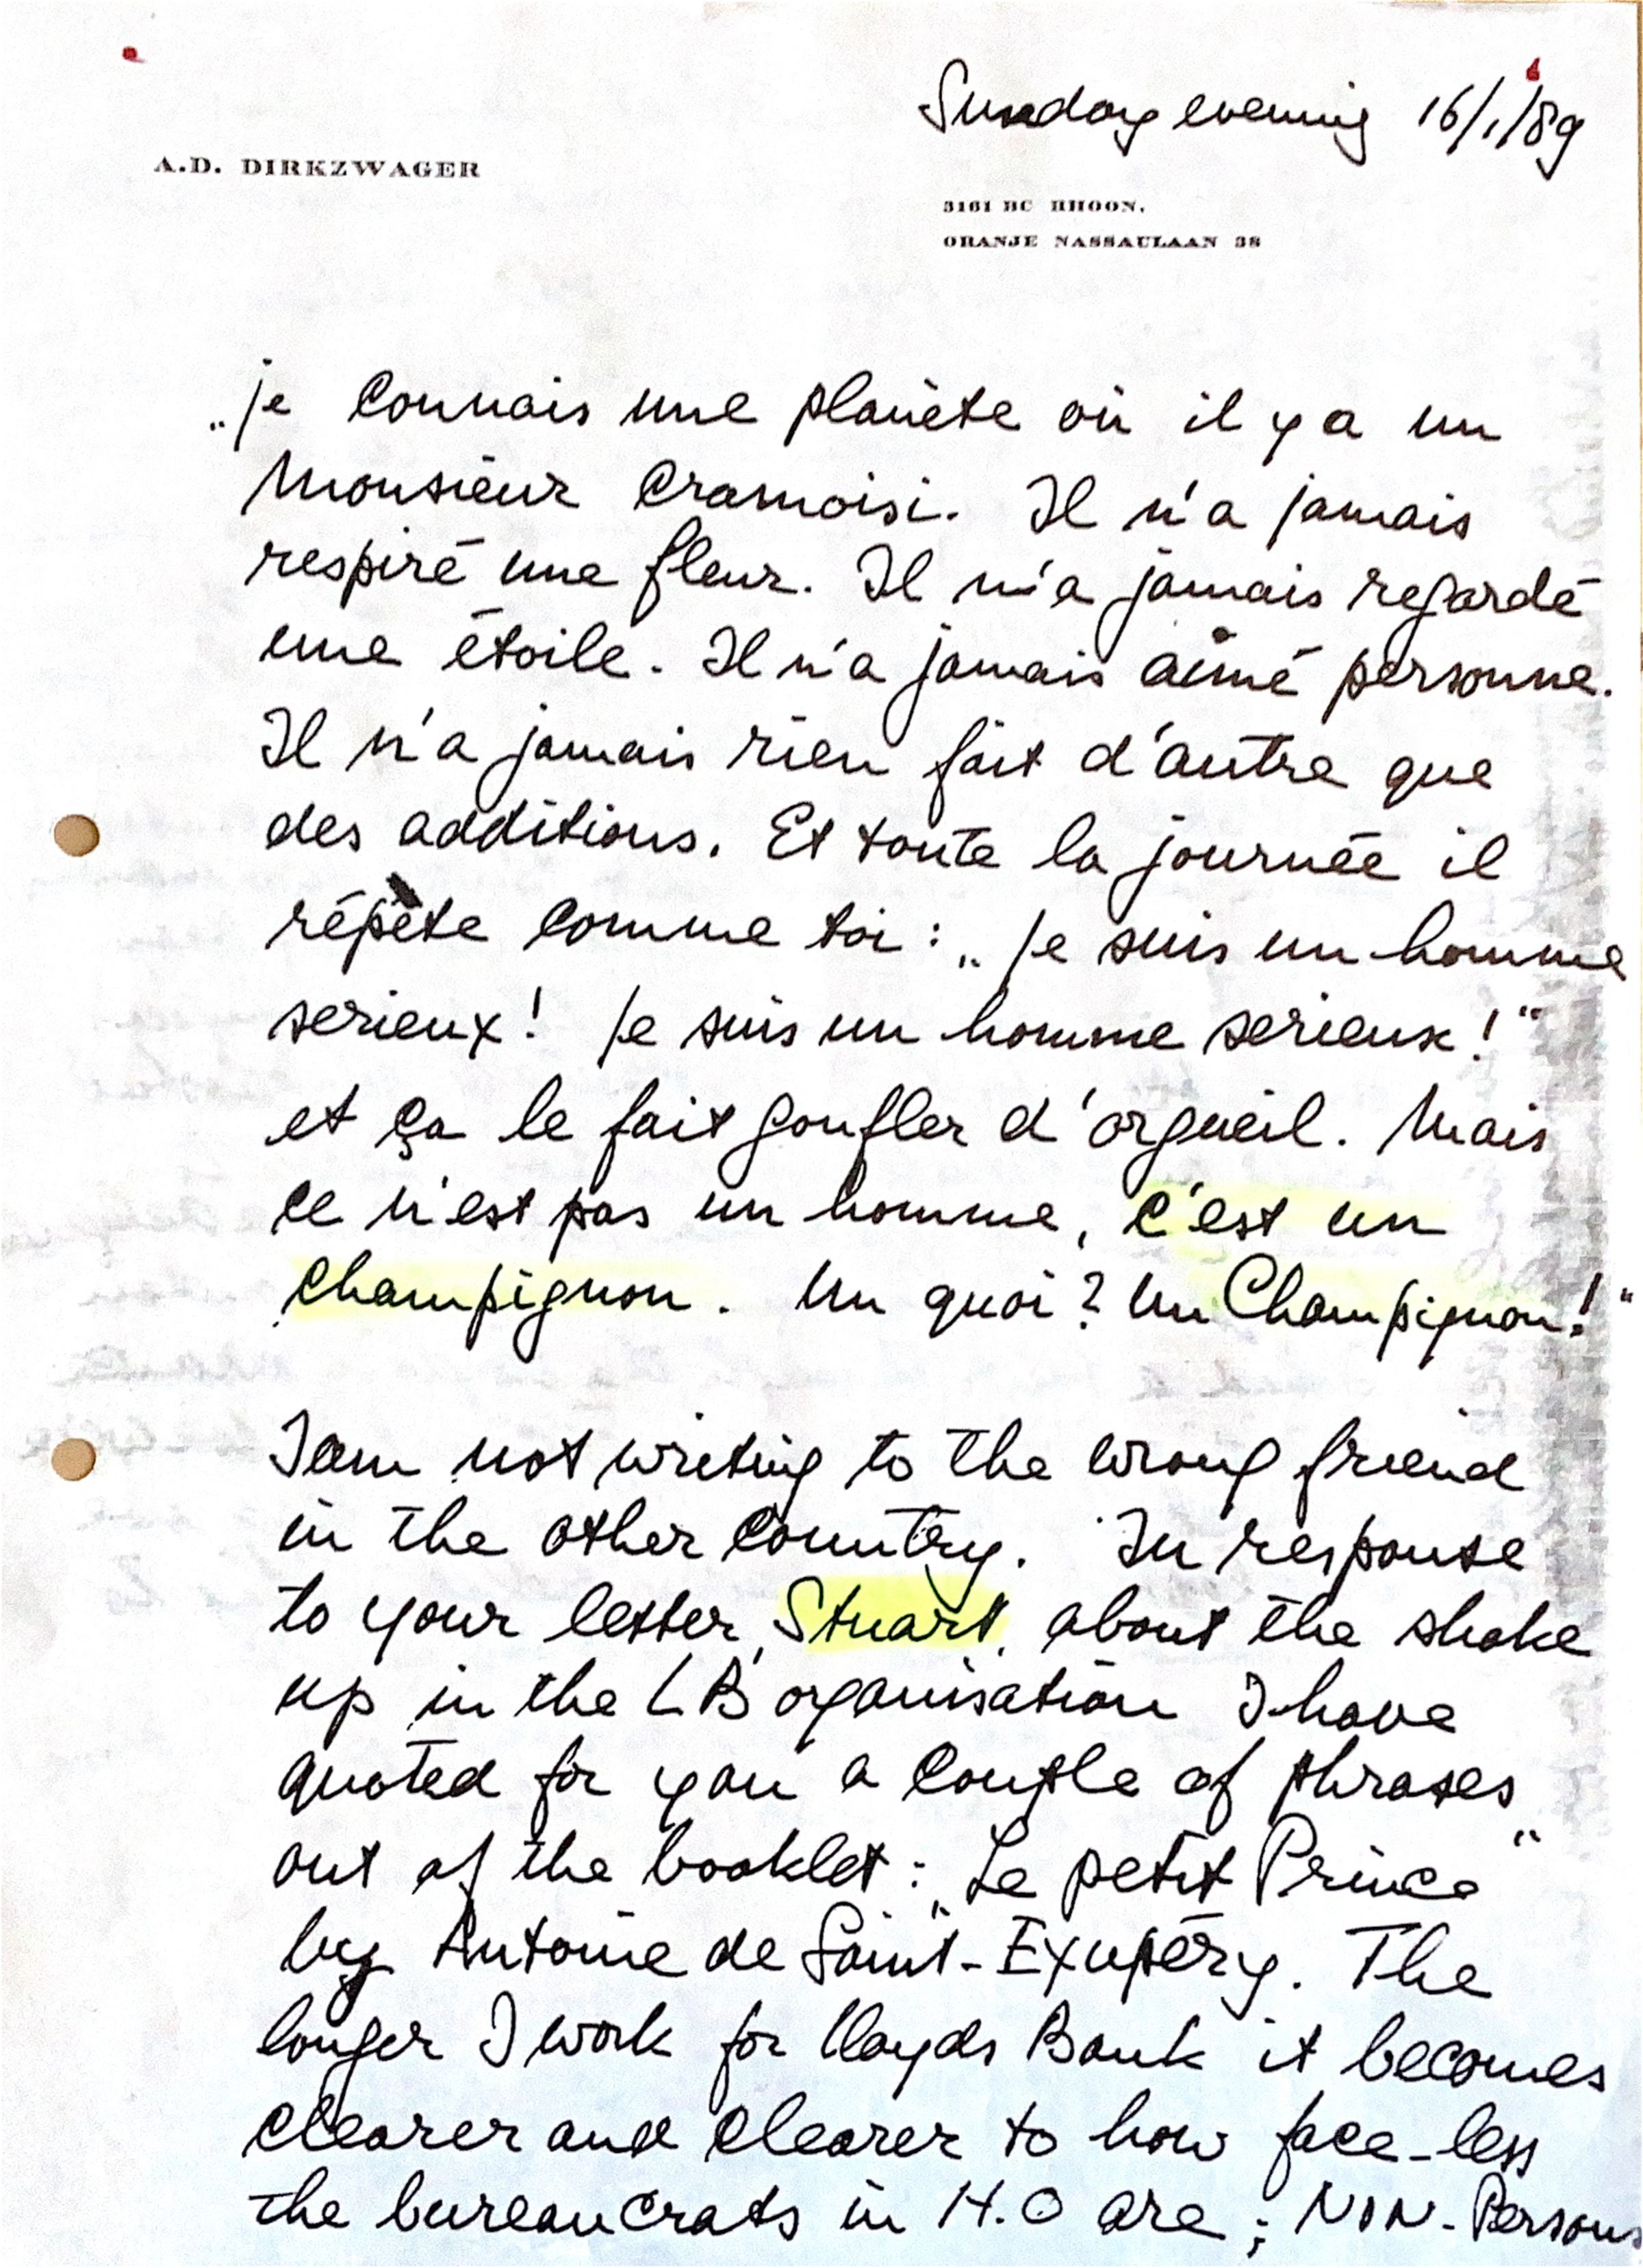 Sunday evening 16/1/89
A.D. DIRKZWAGER
3161 BC RHOON.
ORANJE NASSAULAAN 38
„je connais une planète où il y a un
Monsieur Cramoisi. Il n'a jamais
respiré une fleur. Il n'a jamais regardé
une étoile. Il n'a jamais aimé personne.
Il n'a jamais rien fait d'autre que
des additions. Et toute la journée il
répète comme toi : „je suis un homme
serieux! je suis un homme serieux!"
et ça le fait gonfler d'orgueil. Mais
ce n'est pas un homme, c'est un
champignon. Un quoi? Un Champignon!"
I am not writing to the wrong friend
in the other country. In response
to your letter, Stuart, about the shake
up in the LB organisation I have
quoted for you a couple of phrases
out of the booklet : „Le petit Prince"
by Antoine de Saint-Exupéry. The
longer I work for Lloyds Bank it becomes
clearer and clearer to how face-less
the bureaucrats in H.O are ; NON-Persons